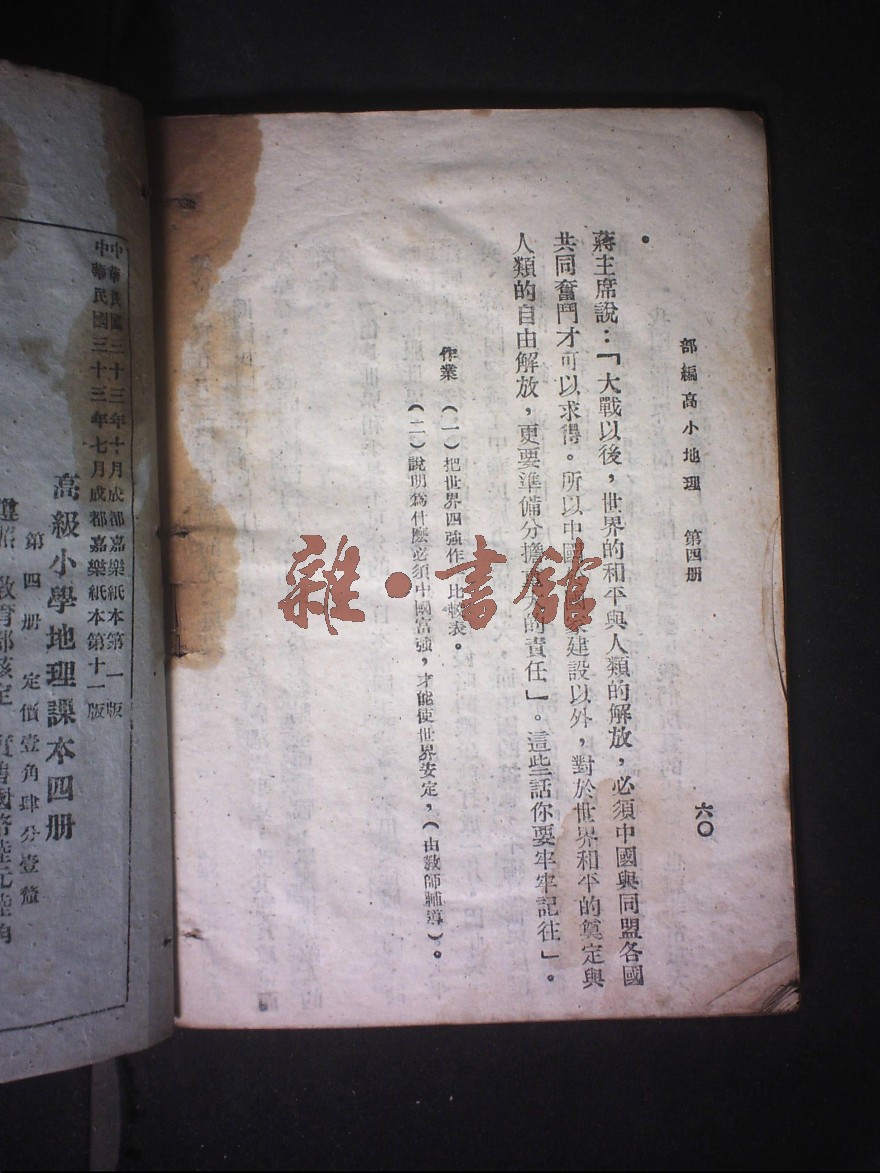 部編高小地理　第四册
六〇
蔣主席說：「大戰以後，世界的和平與人類的解放，必須中國與同盟各國
共同奮鬥才可以求得。所以中國 建設以外，對於世界和平的奠定與
人類的自由解放，更要準備分擔 的責任」。這些話你要牢牢記往」。
作業　（一）把世界四強作 比較表。
（二）說明爲什麽必須中國富強，才能使世界安定，（由教師輔導）。
雜·書館
中華民國三十三年十月成都嘉樂紙本第一版
中華民國三十三年七月成都嘉樂紙本第十一版
高級小學地理課本四册
第四册　定價壹角肆分壹釐
教育部核定